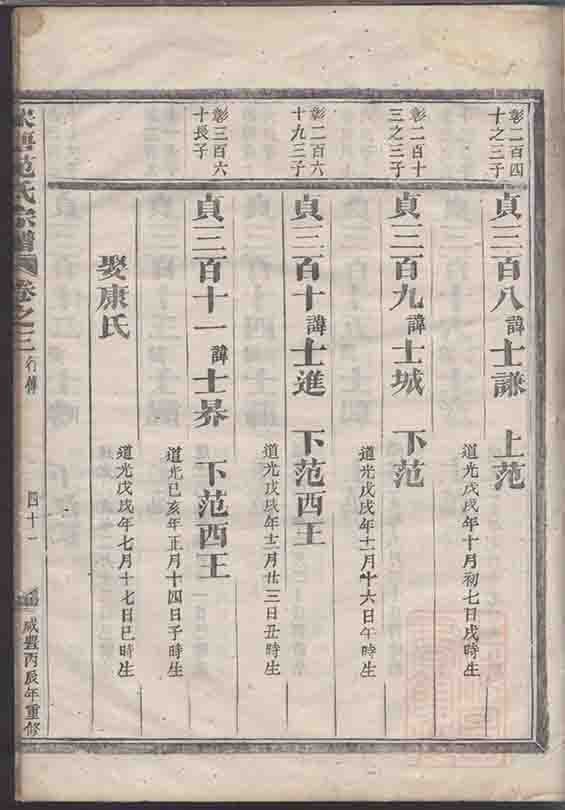 彰二百四
十之三子
貞三百八 諱士謙 上范
道光戊戌年十月初七日戌時生
彰二百十
三之三子
貞三百九 諱士城 下范
道光戊戌年十一月十六日午時生
彰二百六
十九三子
貞三百十 諱士進 下范西王
道光戊戌年十二月廿三日丑時生
彰三百六
十長子
貞三百十一 諱士界 下范西王
道光己亥年正月十四日子時生
娶康氏
道光戊戌年七月十七日巳時生
范氏宗譜 卷之三 行傳
四十一
咸豐丙辰年重修